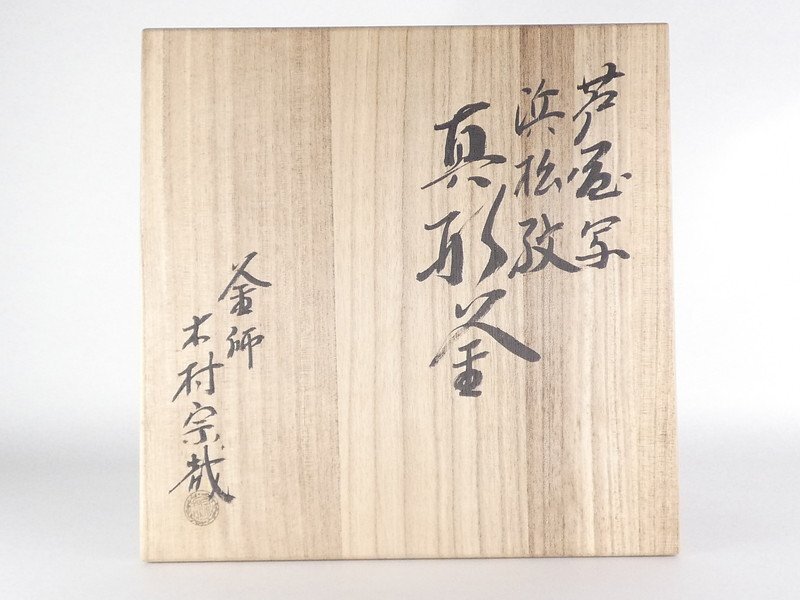 芦屋写
浜松紋
真形釜
釜師
木村宗哉